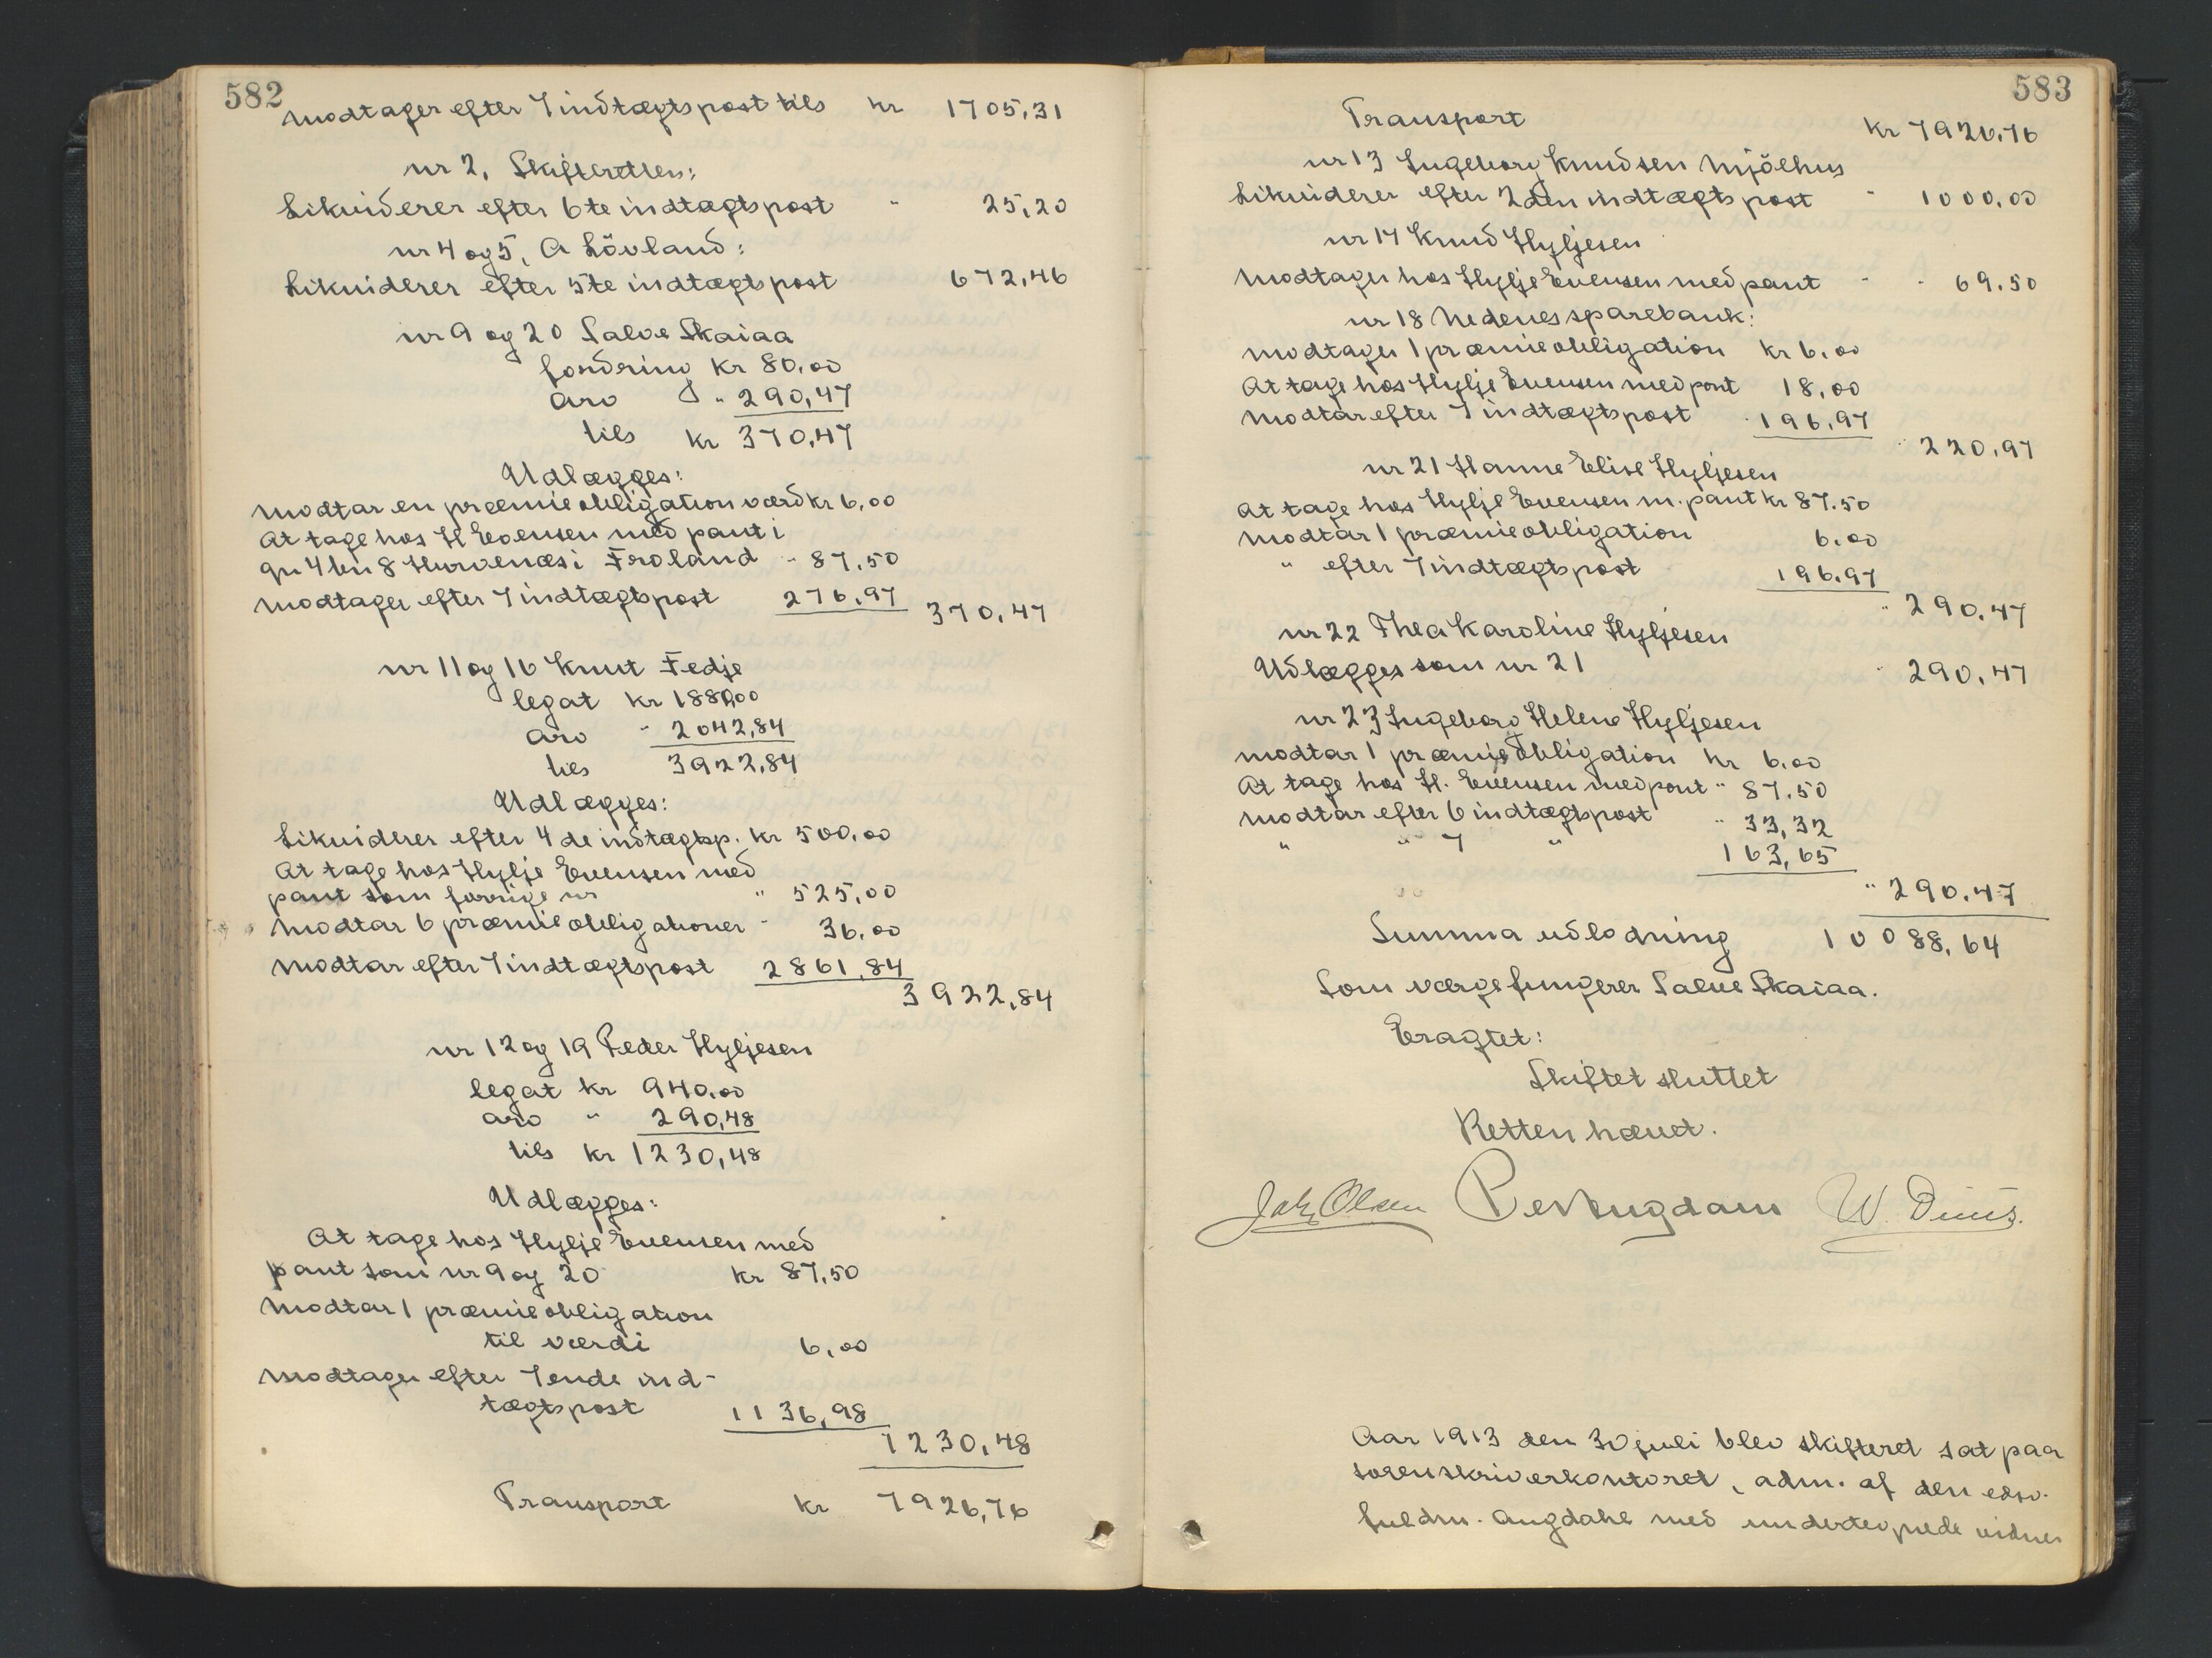 582
Modtager efter 7 indtægtspost tils kr 1705,31
nr 2, Skifteretten:
Likviderer efter 6te indtægtspost " 25,20
nr 4 og 5, A Lövland:
Likviderer efter 5te indtægtspost 672,46
nr 9 og 20 Salve Skaiaa
fordring kr 80,00
Arv " 290,47
tils kr 370,47
Udlægges:
Modtar en præmieobligation værd kr 6,00
At tage hos H Evensen med pant i
gn 4 bn 8 Hurvenæs i Froland " 87,50
Modtager efter 7 indtægtspost 276,97
370,47
nr 11 og 16 Knut Fedje
legat kr 1880,00
Arv " 2042,84
tils 3922,84
Udlægges:
Likviderer efter 4de indtægtsp. kr 500,00
At tage hos Hylje Evensen med
pant som forrige nr " 525,00
Modtar 6 præmieobligationer " 36,00
Modtar efter 7 indtægtspost 2861,84
3922,84
nr 12 og 19 Peder Hyljesen
legat kr 940,00
arv " 290,48
tils kr 1230,48
Udlægges:
At tage hos Hylje Evensen med
pant som nr 9 og 20 kr 87,50
Modtar 1 præmieobligation
til værdi 6,00
Modtager efter 7ende ind-
tægtspost 1136,98
1230,48
Transport kr 7926,76
583
Transport kr 7926,76
nr 13 Ingeborg Knudsen Mjölhus
Likviderer efter 2den indtægtspost " 1000,00
nr 17 Knud Hyljesen
Modtager hos Hylje Evensen med pant " " 69.50
nr 18 Nedenes sparebank:
Modtager 1 præmieobligation kr 6,00
At tage hos Hylje Evensen med pant 18,00
Modtar efter 7 indtægtspost 196,97
" 220,97
nr 21 Hanne Elise Hyljesen
At tage hos Hylje Evensen m. pant kr 87.50
Modtar 1 præmieobligation 6.00
" efter 7 indtægtspost 196.97
" 290,47
nr 22 Thea Karoline Hyljesen
Udlægges som nr 21 " 290,47
nr 23 Ingeborg Helene Hyljesen
modtar 1 præmieobligation kr 6,00
At tage hos H. Evensen med pant " 87,50
Modtar efter 6 indtægtspost " 33,32
" " 7 " 163,65
" 290.47
Summa udlodning 10088,64
Som værge fungerer Salve Skaiaa.
Eragtet:
Skiftet sluttet
Retten hævet.
Joh Olsen P Augdam W. Duus.
Aar 1913 den 30 juli blev skifteret sat paa
sorenskriverkontoret, adm. af den edsv.
fuldm. Augdahl med undertegnede vidner